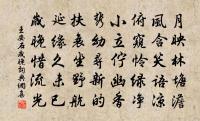 月映林塘澹
風含笑語涼
俯窺憐綠淨
小立佇幽香
攜幼尋新的
扶衰坐野航
延緣久未已
歲晚惜流光
王安石歲晚詩